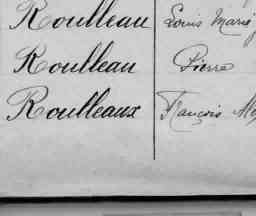 Roulleau Louis Marie
Roulleau Pierre
Roulleaux François